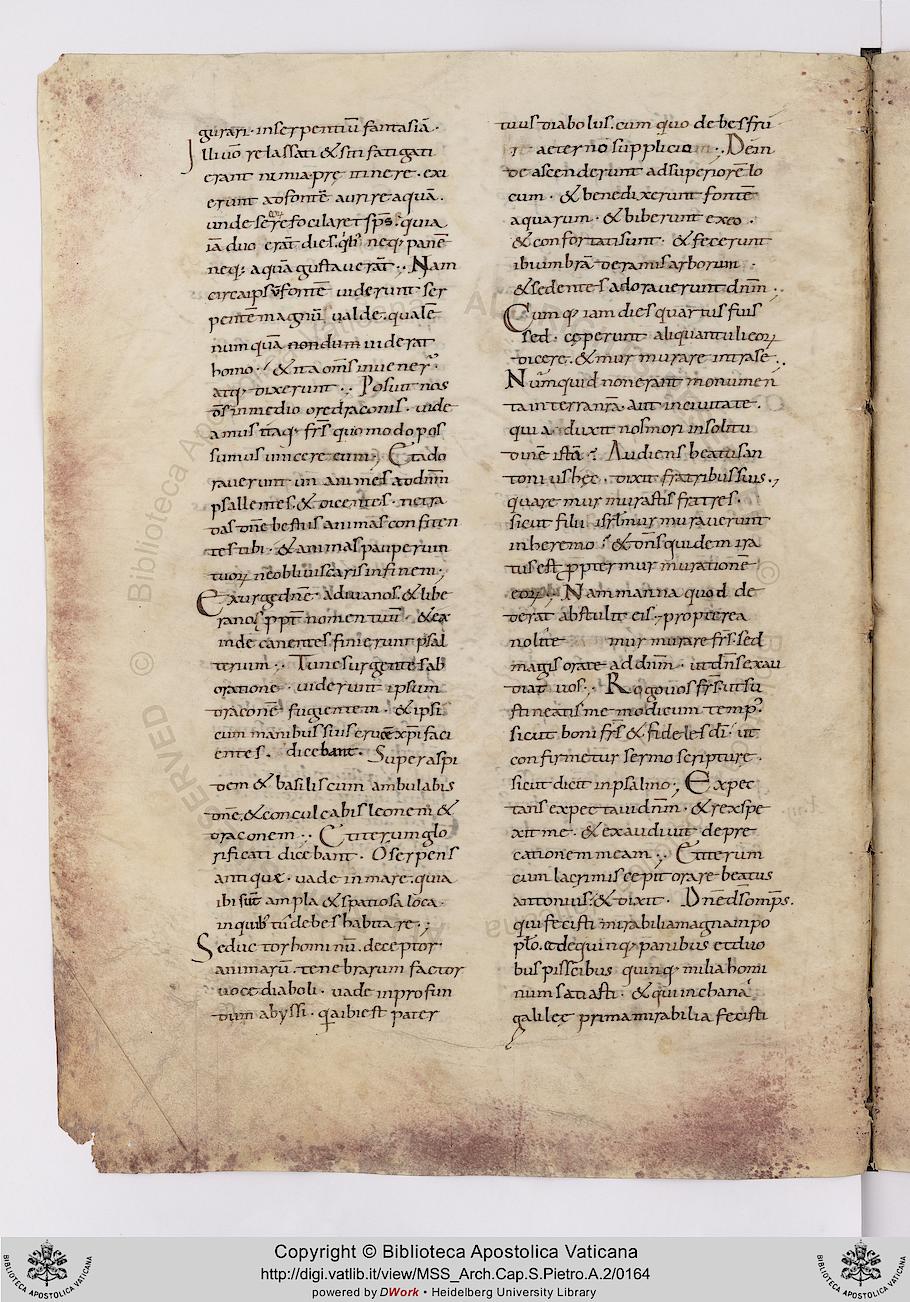 gurari · inserpentiū fantasiā ·
Illi ūo relassati & siti fatigati
erant nimia pre itinere · exi
erunt adfontē aurire aquā ·
unde se refocilaret sps̄ · quia
iā duo erāt dies · qb; neq; panē
neq; aquā gustauerāt ·, Nam
circa ipsū fontē uiderunt ser
pentē magnū ualde · qualē
numquā nondum uiderat
homo · & ita om̄s inuener̄ ·
atq; dixerunt ·, Posuit nos
d̄s inmedio ore draconis · uide
amus itaq; frs̄ quomodo pos
sumus uincere eum ·, Et ado
rauerunt un animes ad dn̄m
psallentes · & dicentes · ne tra
das dn̄e bestiis animas confiten
tes tibi · & animas pauperum
tuoꝝ ne obliuiscaris infinem ·,
Exurge dn̄e · adiuua nos · & libe
ra nos ppt̄ nomen tuū · & ex
inde canentes finierunt psal
terium ·, Tunc surgentes ab
oratione · uiderunt ipsum
draconē fugientem · & ipsi
cum manibus suis crucē xpi faci
entes · dicebant · Super aspi
dem & basiliscum ambulabis
dn̄e · & conculcabis leonem &
draconem ·, Et iterum glo
rificati dicebant · O serpens
antique · uade in mare · quia
ibi sūt ampla & spatiosa loca ·
in quib; tu debes habitare ·,
Seductor hominū · deceptor
animarū · tenebrarum factor
uoce diaboli · uade in profun
dum abyssi · qa ibi est pater
tuus diabolus · cum quo debes fru
i aeterno supplicio ·, Dein
de ascenderunt ad superiore lo
cum · & benedixerunt fontē
aquarum · & biberunt ex eo ·
& confortati sunt · & fecerunt
ibi umbrā de ramis arborum ·
& sedentes adorauerunt dn̄m ·,
Cumq; iam dies quartus fuis
sed · ceperunt aliquantuli eoꝝ
dicere · & murmurare intra se ·,
Numquid non erant monumen
ta in terra nr̄a · aut in ciuitate ·
quia duxit nos mori in solitu
dinē istā · Audiens beatus an
tonius hęc · dixit fratribus suis ·,
quare murmurastis frtres ·
sicut filii isrl̄ murmurauerunt
in heremo · & dn̄s quidem ira
tus est ꝓpter murmurationē
eoꝝ ·, Nam manna quod de
derat abstulit eis · propterea
nolite murmurare frs̄ · sed
magis orate ad dn̄m · ut dn̄s exau
diat uos ·, Rogo uos frs̄ · ut su
stineatis me modicum temp̄ ·
sicut boni frs̄ & fideles dī · ut
confirmetur sermo scripture ·
sicut dicit in psalmo ·, Expec
tans expectaui dn̄m · & rexspe
xit me · & exaudiuit depre
cationem meam ·, Et iterum
cum lacrimis cepit orare beatus
antonius · & dixit · Dn̄e ds̄ omps̄ ·
qui fecisti mirabilia magna inpo
plo · & dequinq; panibus et duo
bus piscibus quinq; milia homi
num satiasti · & qui in chana
galileę prima mirabilia fecisti
Copyright © Biblioteca Apostolica Vaticana
http://digi.vatlib.it/view/MSS_Arch.Cap.S.Pietro.A.2/0164
powered by DWork • Heidelberg University Library